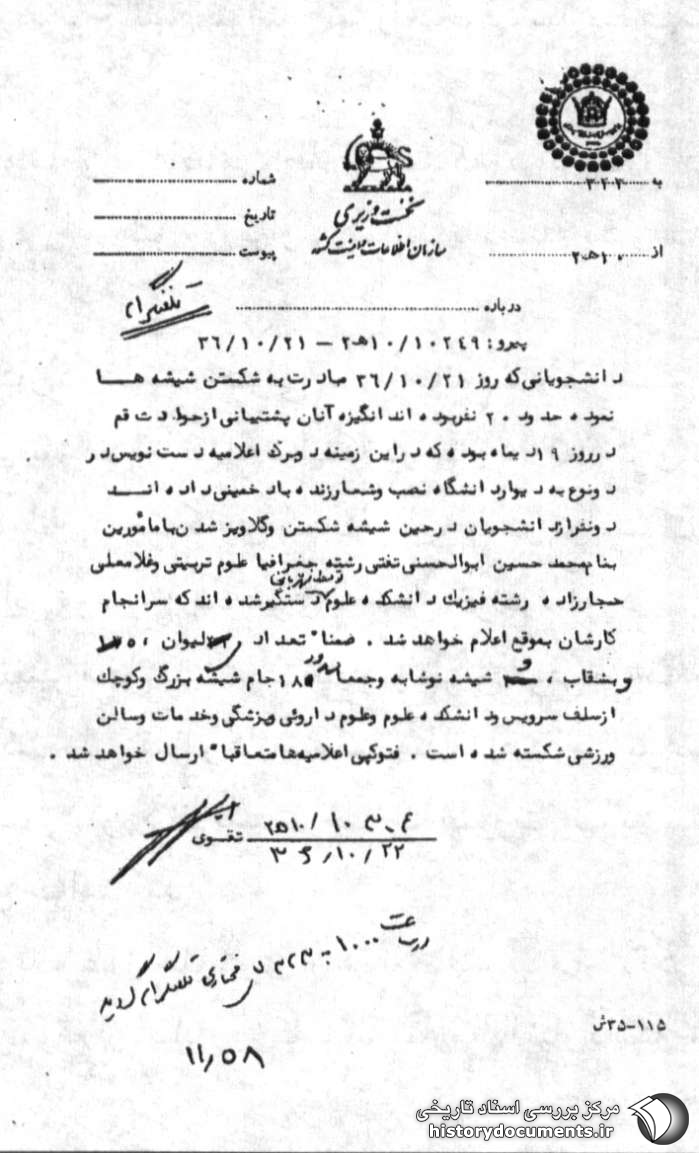 به ۳۲۲
شماره
نخست وزیری
تاریخ
سازمان اطلاعات و امنیت کشور
از ۱۰هـ۲
پیوست
تلفنگرام
درباره
پیرو: ۱۰/۱۰۲۴۹هـ۲ – ۳۶/۱۰/۲۱
دانشجویانی که روز ۳۶/۱۰/۲۱ مبادرت به شکستن شیشه هــا
نموده حدود ۲۰ نفر بوده اند انگیزه آنان پشتیبانی از حوادث قم
در روز ۱۹ دیماه بوده که در این زمینه دو برگ اعلامیه دست نویس در
دو نوع به دیوار دانشگاه نصب و شعار زنده باد خمینی داده انــد
دو نفر از دانشجویان در حین شیشه شکستن و گلاویز شدن با مامورین
بنام محمد حسین ابوالحسنی تفتی رشته جغرافیا علوم تربیتی و غلامعلی
حجارزاده رشته فیزیک دانشکده علوم دستگیر شده اند که سرانجام
کارشان بموقع اعلام خواهد شد . ضمنا" تعداد لیوان ،
و بشقاب ، شیشه نوشابه و جمعا جام شیشه بزرگ و کوچک
از سلف سرویس و دانشکده علوم و علوم داروئی و پزشکی و خدمات و سالن
ورزشی شکسته شده است . فتوکپی اعلامیه ها متعاقبا" ارسال خواهد شد .
تقوی
۳۶/۱۰/۲۲
در ساعت ۱۰۰۰ به ۳۲۲ تلفنگرام گردید
۱۱/۵۸
۱۱۵-۳۵ش
مرکز بررسی اسناد تاریخی
historydocuments.ir